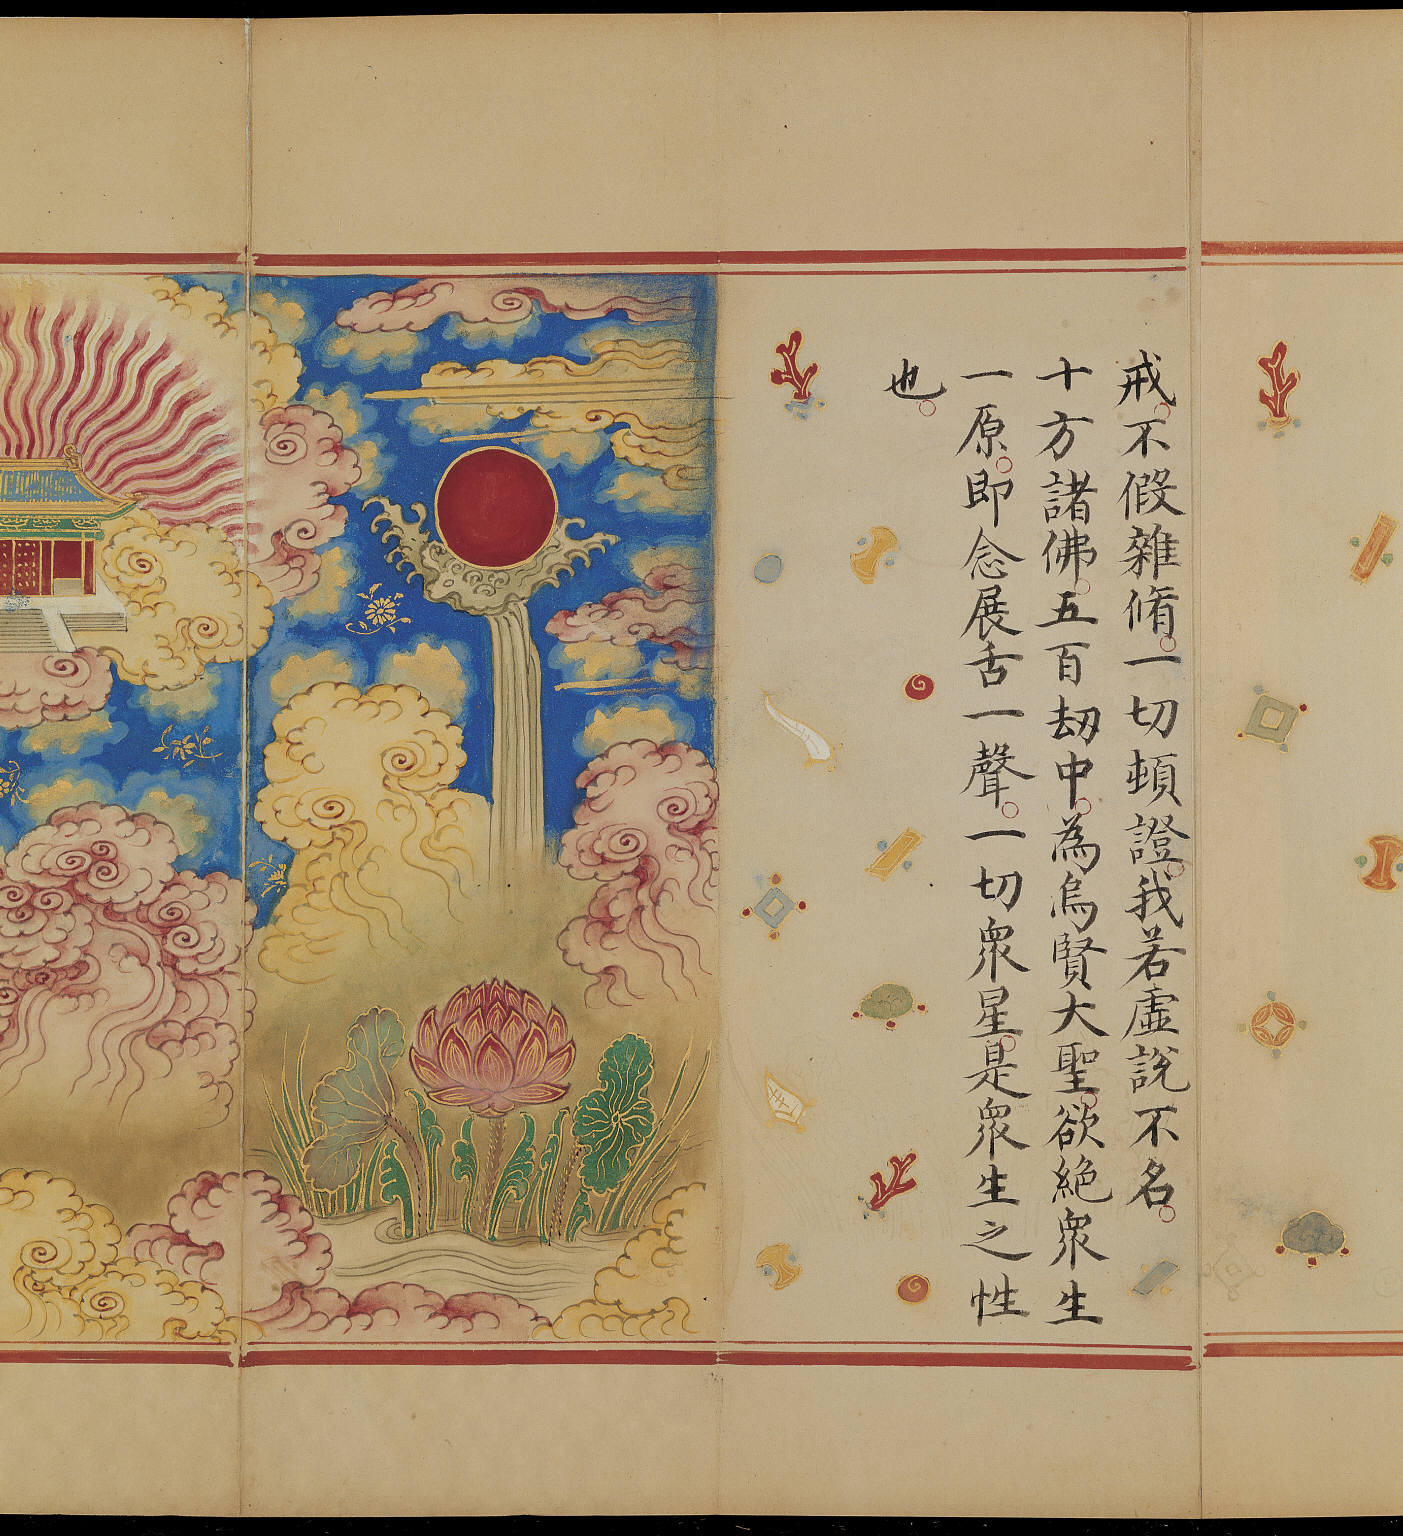 戒。不假雜脩。一切頓證。我若虛說不名。
十方諸佛。五百劫中。為烏賢大聖。欲絕衆生
一原。即念展舌一聲。一切衆星。是衆生之性
也。